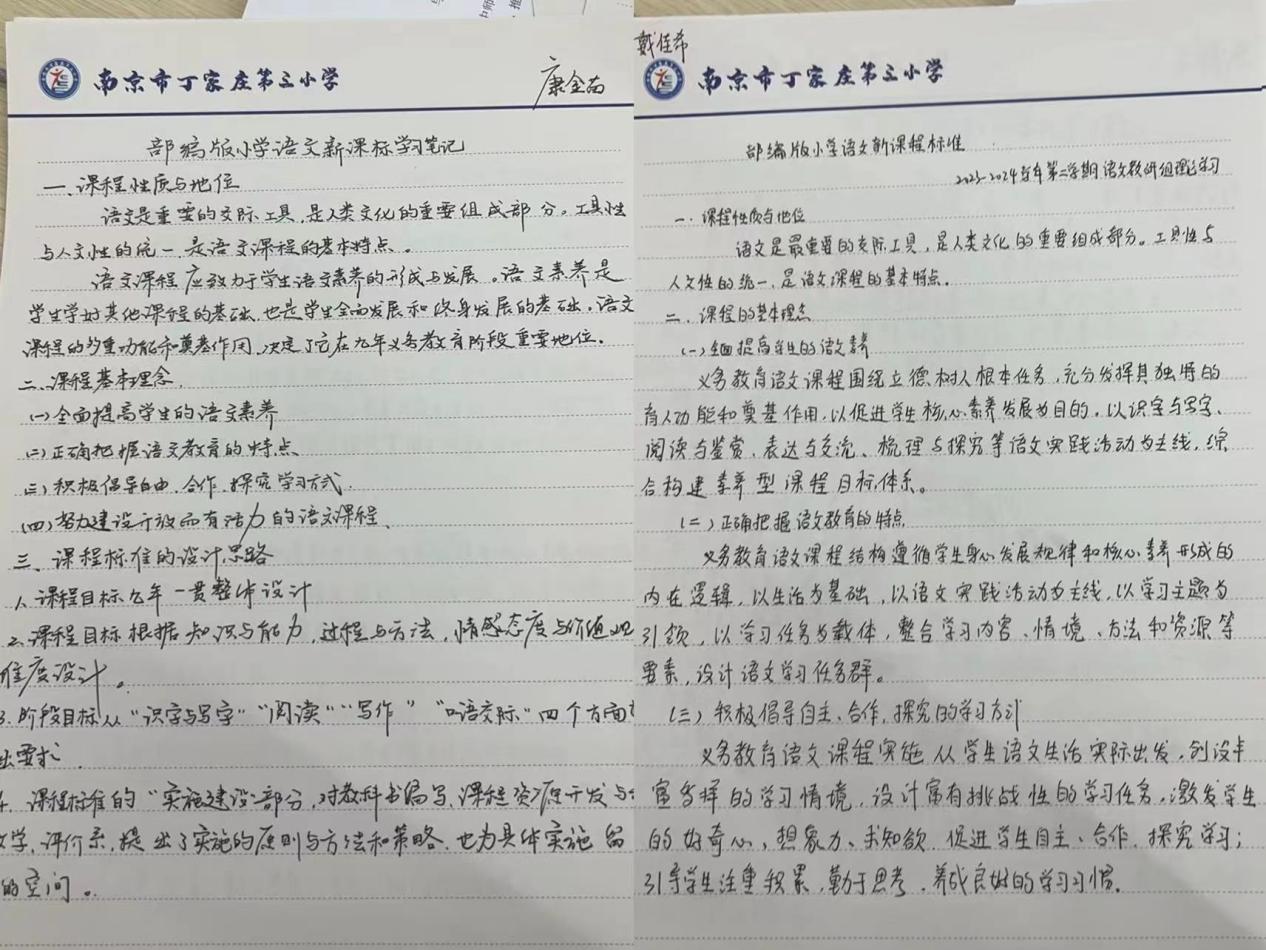 南京市丁家庄第三小学
康金南
部编版小学语文新课标学习笔记
一、课程性质与地位
语文是重要的交际工具，是人类文化的重要组成部分。工具性
与人文性的统一，是语文课程的基本特点。
语文课程应致力于学生语文素养的形成与发展。语文素养是
学生学好其他课程的基础，也是学生全面发展和终身发展的基础，语文
课程的多重功能和奠基作用，决定了它在九年义务教育阶段重要地位。
二、课程基本理念
(一)全面提高学生的语文素养
(二)正确把握语文教育的特点
(三)积极倡导自由、合作、探究学习方式
(四)努力建设开放而有活力的语文课程
三、课程标准的设计思路
1、课程目标九年一贯整体设计
2、课程目标根据知识与能力，过程与方法，情感态度与价值观
维度设计。
3、阶段目标从“识字与写字”“阅读”“写作”“口语交际”四个方面
出要求
4、课程标准的“实施建设”部分，对教科书编写，课程资源开发与
教学，评价系，提出了实施的原则与方法和策略，也为具体实施留
的空间。
戴佳希
南京市丁家庄第三小学
部编版小学语文新课程标准
2023-2024学年第二学期语文教研组理论学习
一、课程性质与地位
语文是最重要的交际工具，是人类文化的重要组成部分。工具性与
人文性的统一，是语文课程的基本特点。
二、课程的基本理念
(一)全面提高学生的语文素养
义务教育语文课程围绕立德树人根本任务，充分发挥其独特的
育人功能和奠基作用，以促进学生核心素养发展为目的，以识字与写字、
阅读与鉴赏，表达与交流、梳理与探究等语文实践活动为主线，综
合构建素养型课程目标体系。
(二)正确把握语文教育的特点
义务教育语文课程结构遵循学生身心发展规律和核心素养形成的
内在逻辑，以生活为基础，以语文实践活动为主线，以学习主题为
引领，以学习任务为载体，整合学习内容、情境、方法和资源等
要素，设计语文学习任务群。
(三)积极倡导自主、合作，探究的学习方式
义务教育语文课程实施从学生语文生活实际出发，创设丰
富多样的学习情境，设计富有挑战性的学习任务，激发学生
的好奇心，想象力、求知欲，促进学生自主、合作、探究学习；
引导学生注重积累，勤于思考，养成良好的学习习惯。